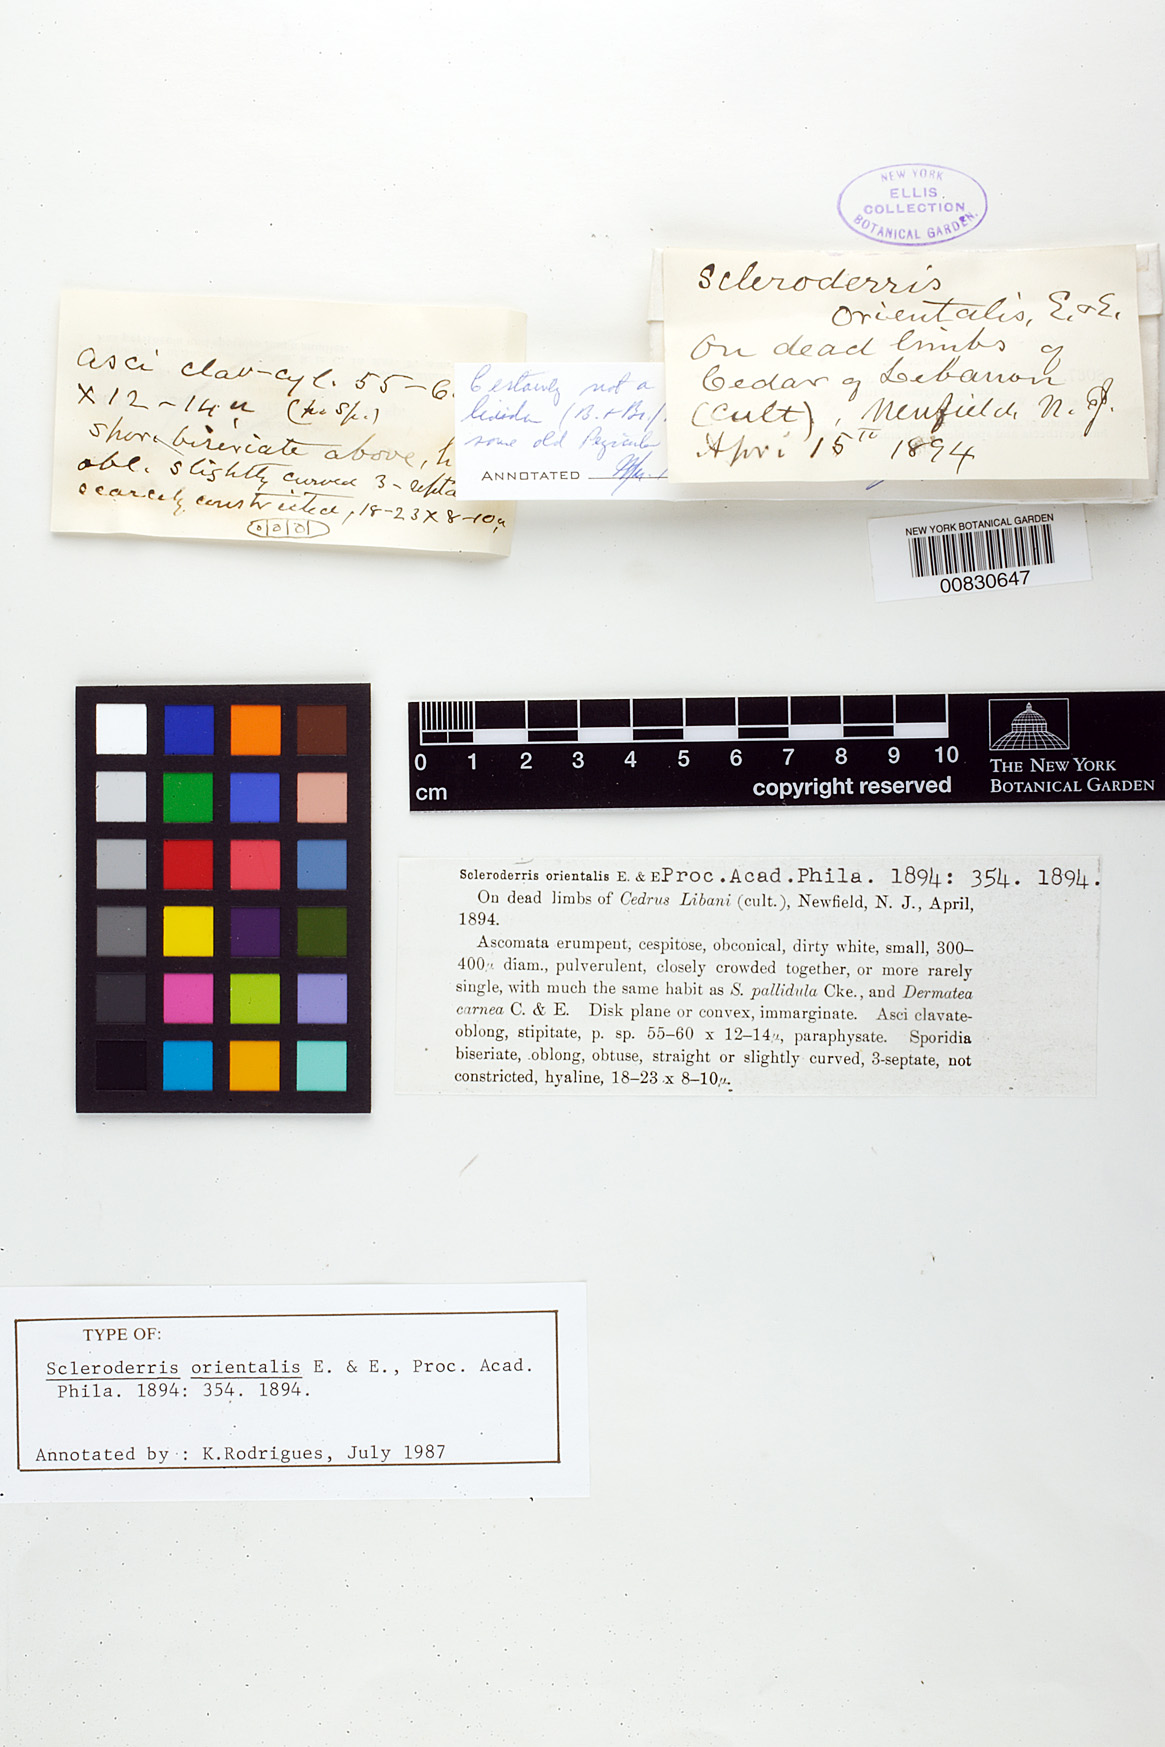 NEW YORK
ELLIS
COLLECTION
BOTANICAL GARDEN.
Scleroderris
orientalis, E. & E.
On dead limbs of
Cedar of Lebanon
(cult), Newfield, N. J.
April 15th 1894
Asci clav-cyl. 55-6
X 12-14 µ (p. sp.)
biseriate above,
obl. slightly curved 3-septa
scarcely constricted, 18-23 X 8-10µ
Certainly not a
(B. & Br.)
some old Pezicula
ANNOTATED
NEW YORK BOTANICAL GARDEN
00830647
0 1 2 3 4 5 6 7 8 9 10
cm
copyright reserved
THE NEW YORK
BOTANICAL GARDEN
Scleroderris orientalis E. & E Proc.Acad.Phila. 1894: 354. 1894.
On dead limbs of Cedrus Libani (cult.), Newfield, N. J., April,
1894.
Ascomata erumpent, cespitose, obconical, dirty white, small, 300–
400µ diam., pulverulent, closely crowded together, or more rarely
single, with much the same habit as S. pallidula Cke., and Dermatea
carnea C. & E. Disk plane or convex, immarginate. Asci clavate-
oblong, stipitate, p. sp. 55–60 x 12–14µ, paraphysate. Sporidia
biseriate, oblong, obtuse, straight or slightly curved, 3-septate, not
constricted, hyaline, 18–23 x 8–10µ.
TYPE OF:
Scleroderris orientalis E. & E., Proc. Acad.
Phila. 1894: 354. 1894.
Annotated by : K.Rodrigues, July 1987